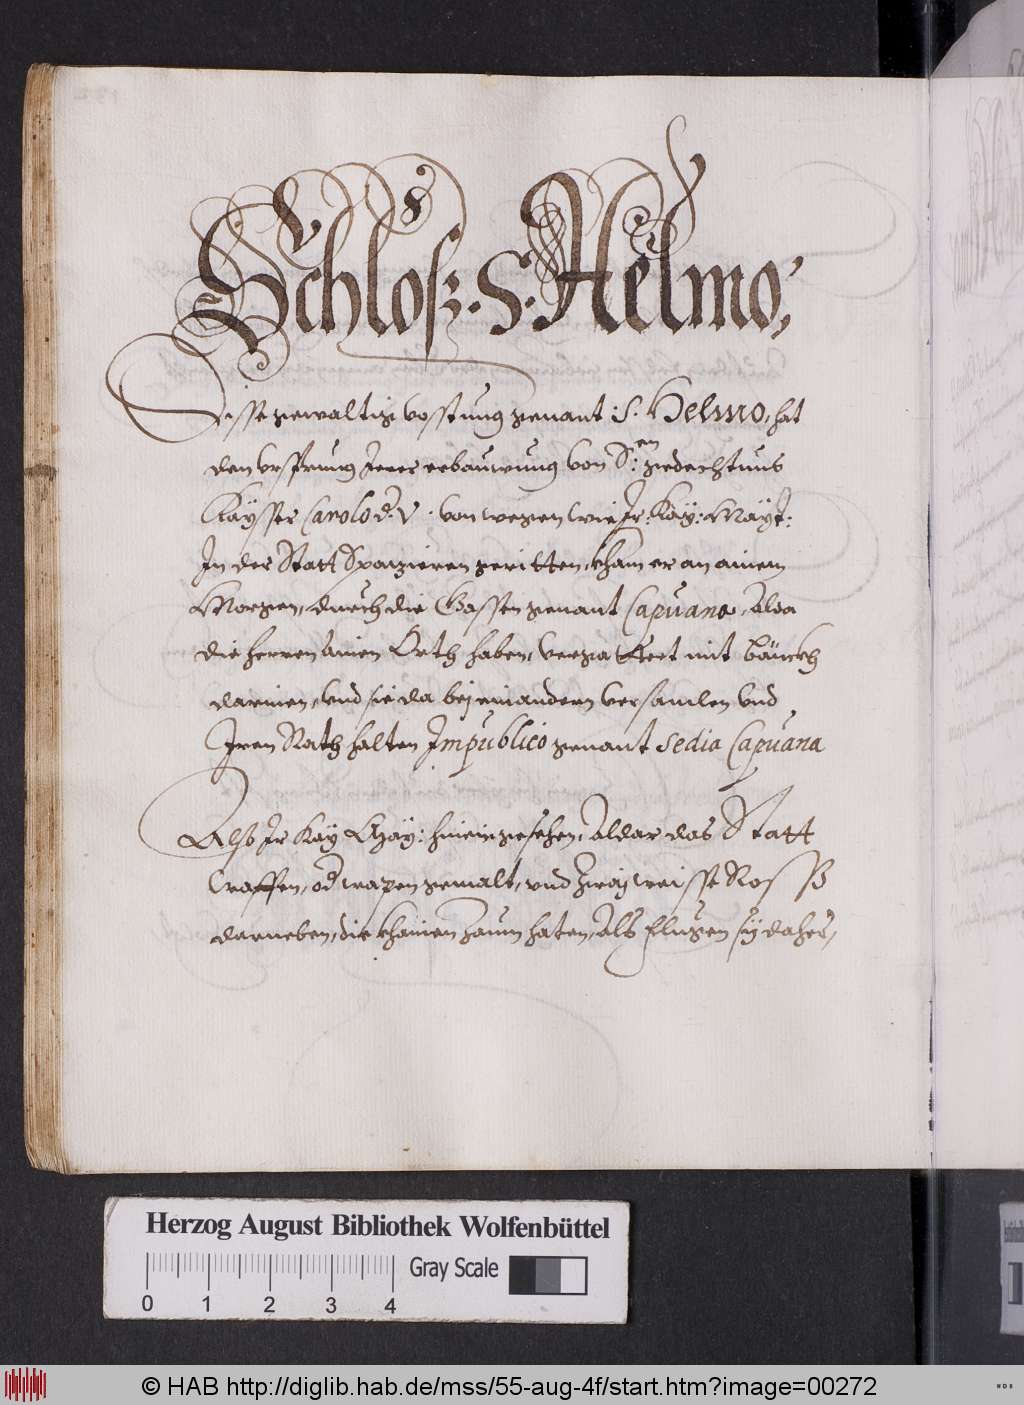 Schloß. S. Helmo,
Disse gewaltig vosstung genant: S. Helmo, hat
den ursprung Irer erbauwung von S:en gedechtnus
Kaÿsser Carolo d. V. von wegen wie Ir: Kaÿ: Maÿt:
In der Statt Spatzieren geritten, kham er an ainem
Morgen, durch die Gassen genant Capuana, Alda
die herren ainen Orth haben, vergattert mit bänckh
darinen, und sie da bej einandern versamlen und
Iren Rath halten Impublico genant Sedia Capuana
Also Ir Kaÿ Maÿ: hinein gesehen, Aldar das Statt
waffen, od wapen gemalt, und zwaÿ weisse Ross
darneben, die khainen Zaum haten, Als flugen sÿ daher,
Herzog August Bibliothek Wolfenbüttel
0 1 2 3 4
Gray Scale
© HAB http://diglib.hab.de/mss/55-aug-4f/start.htm?image=00272